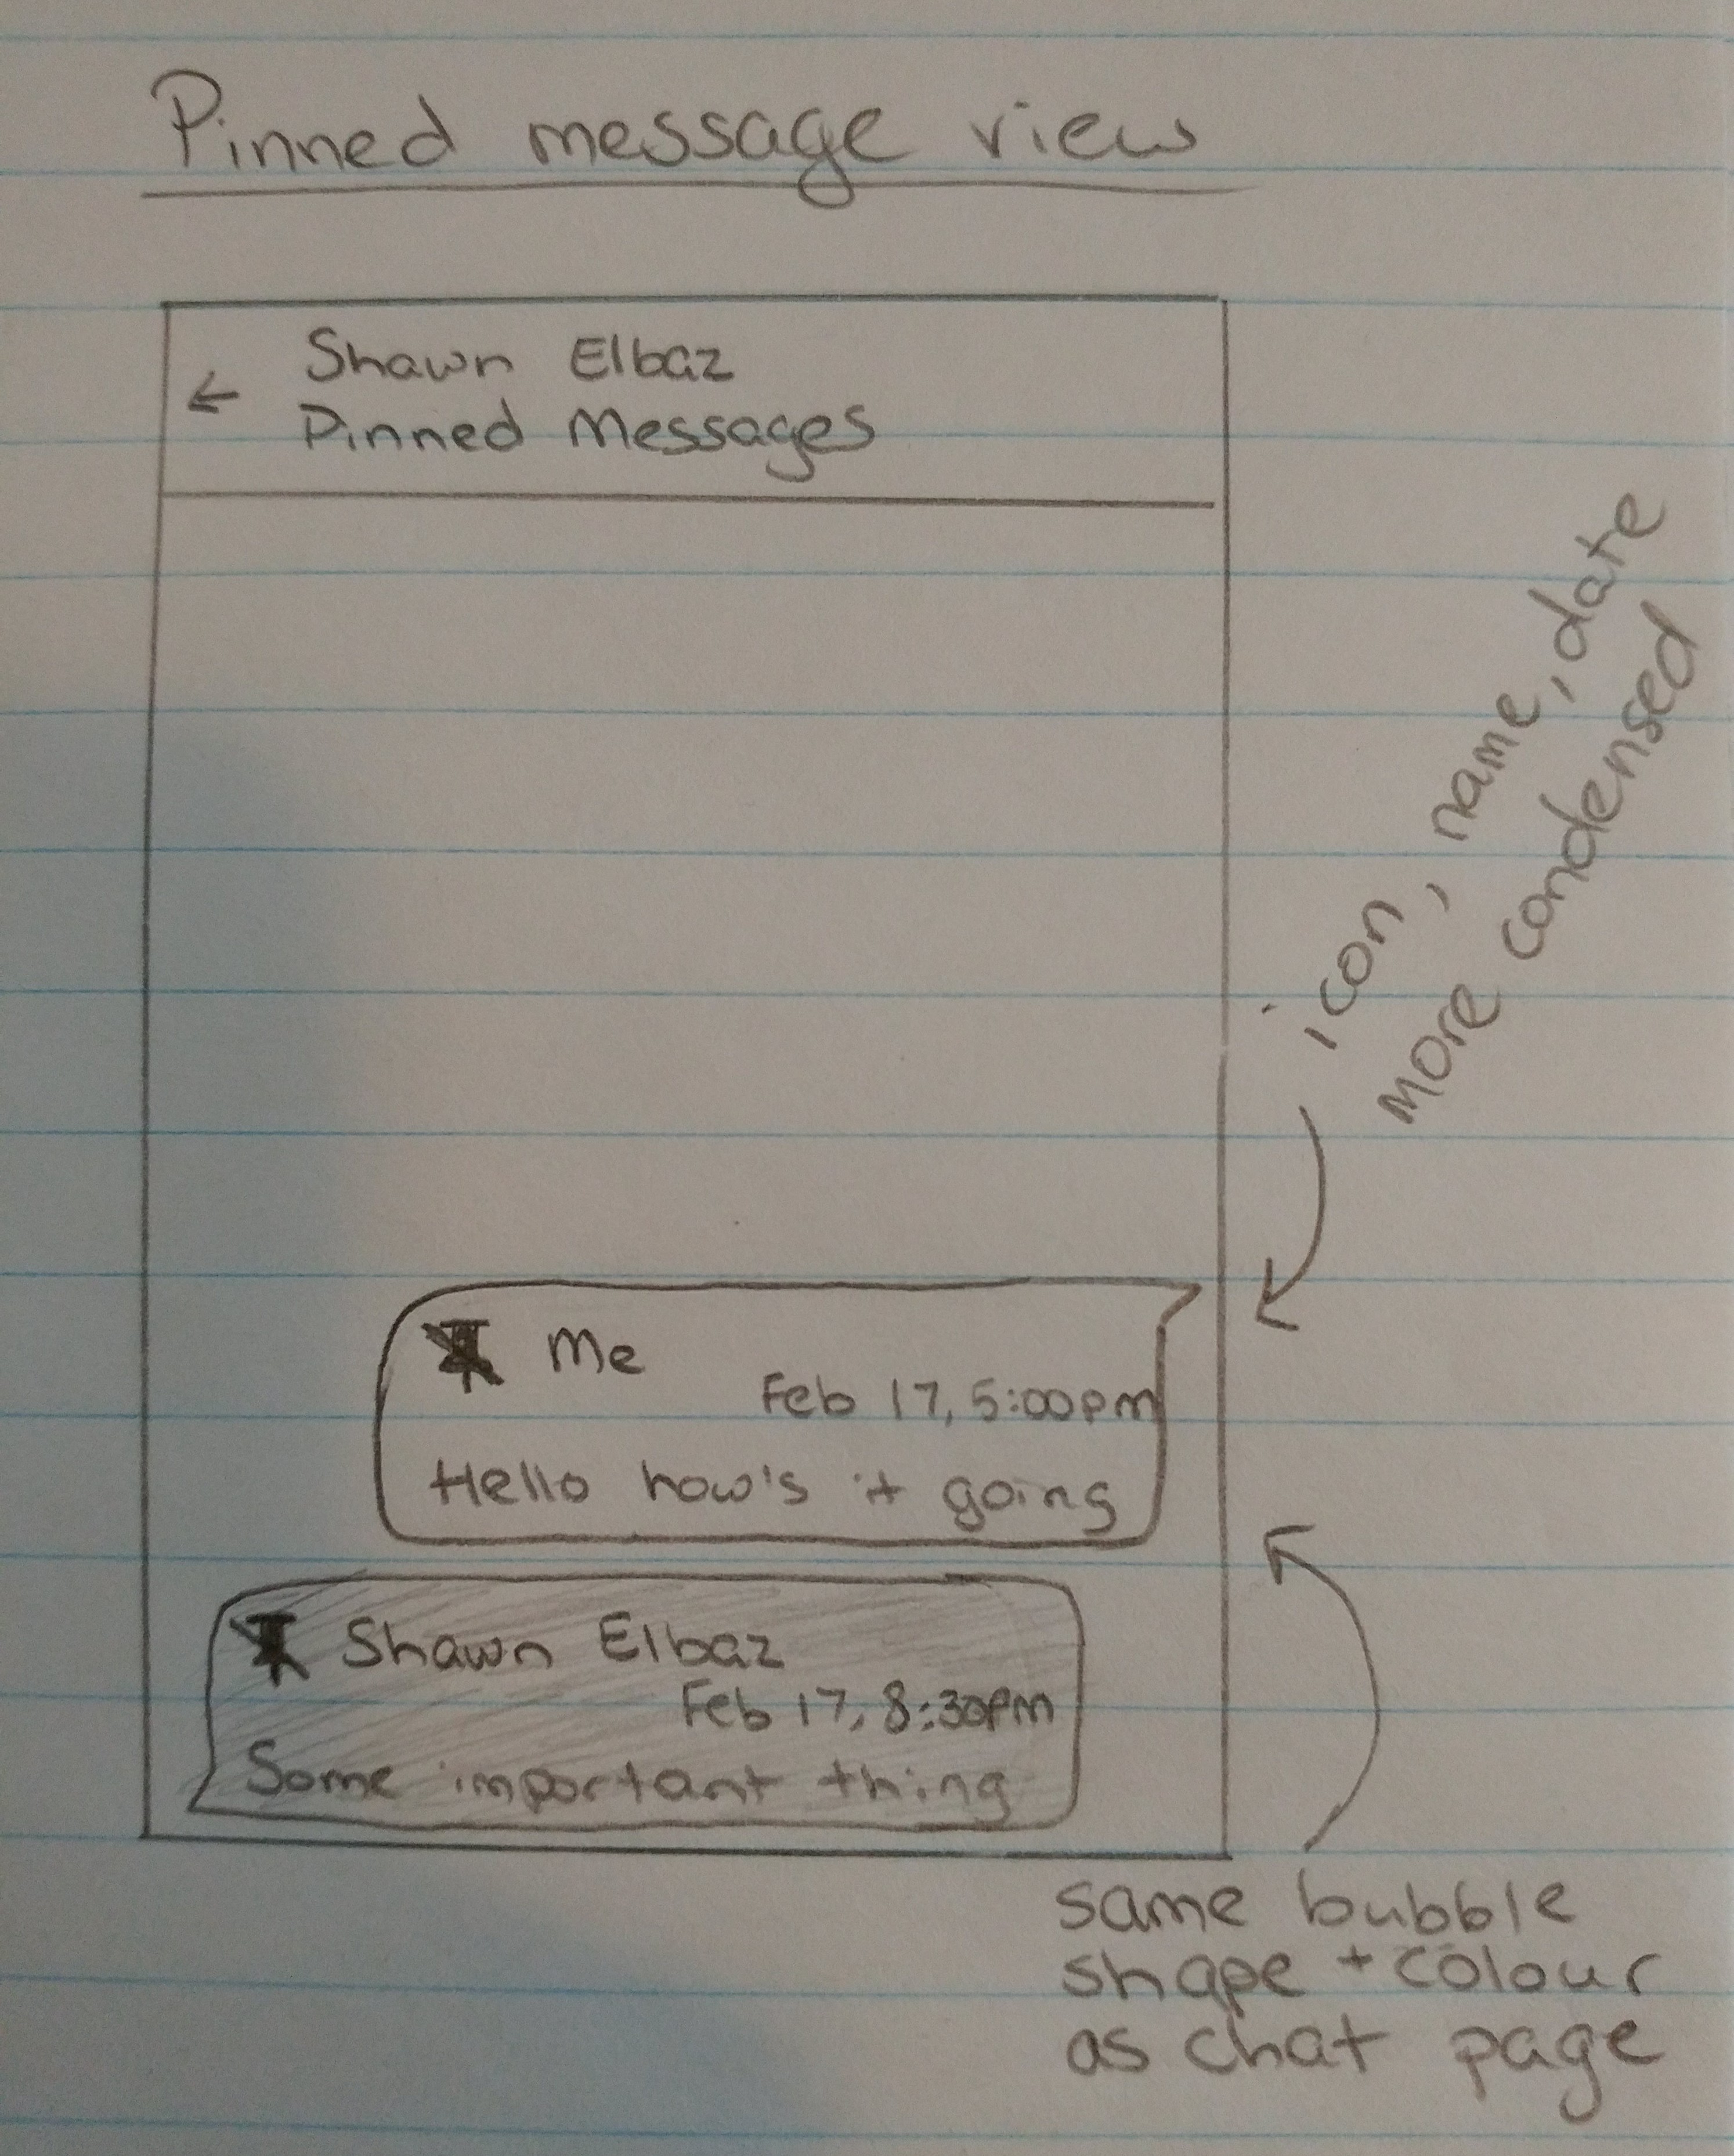 Pinned message view
Shawn Elbaz
Pinned Messages
icon, name, date
more condensed
Me
Feb 17, 5:00pm
Hello how's it going
Shawn Elbaz
Feb 17, 8:30pm
Some important thing
same bubble
shape + colour
as chat page